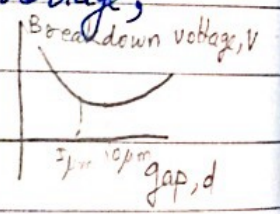 Breakdown voltage, V
1μm 10μm
gap, d